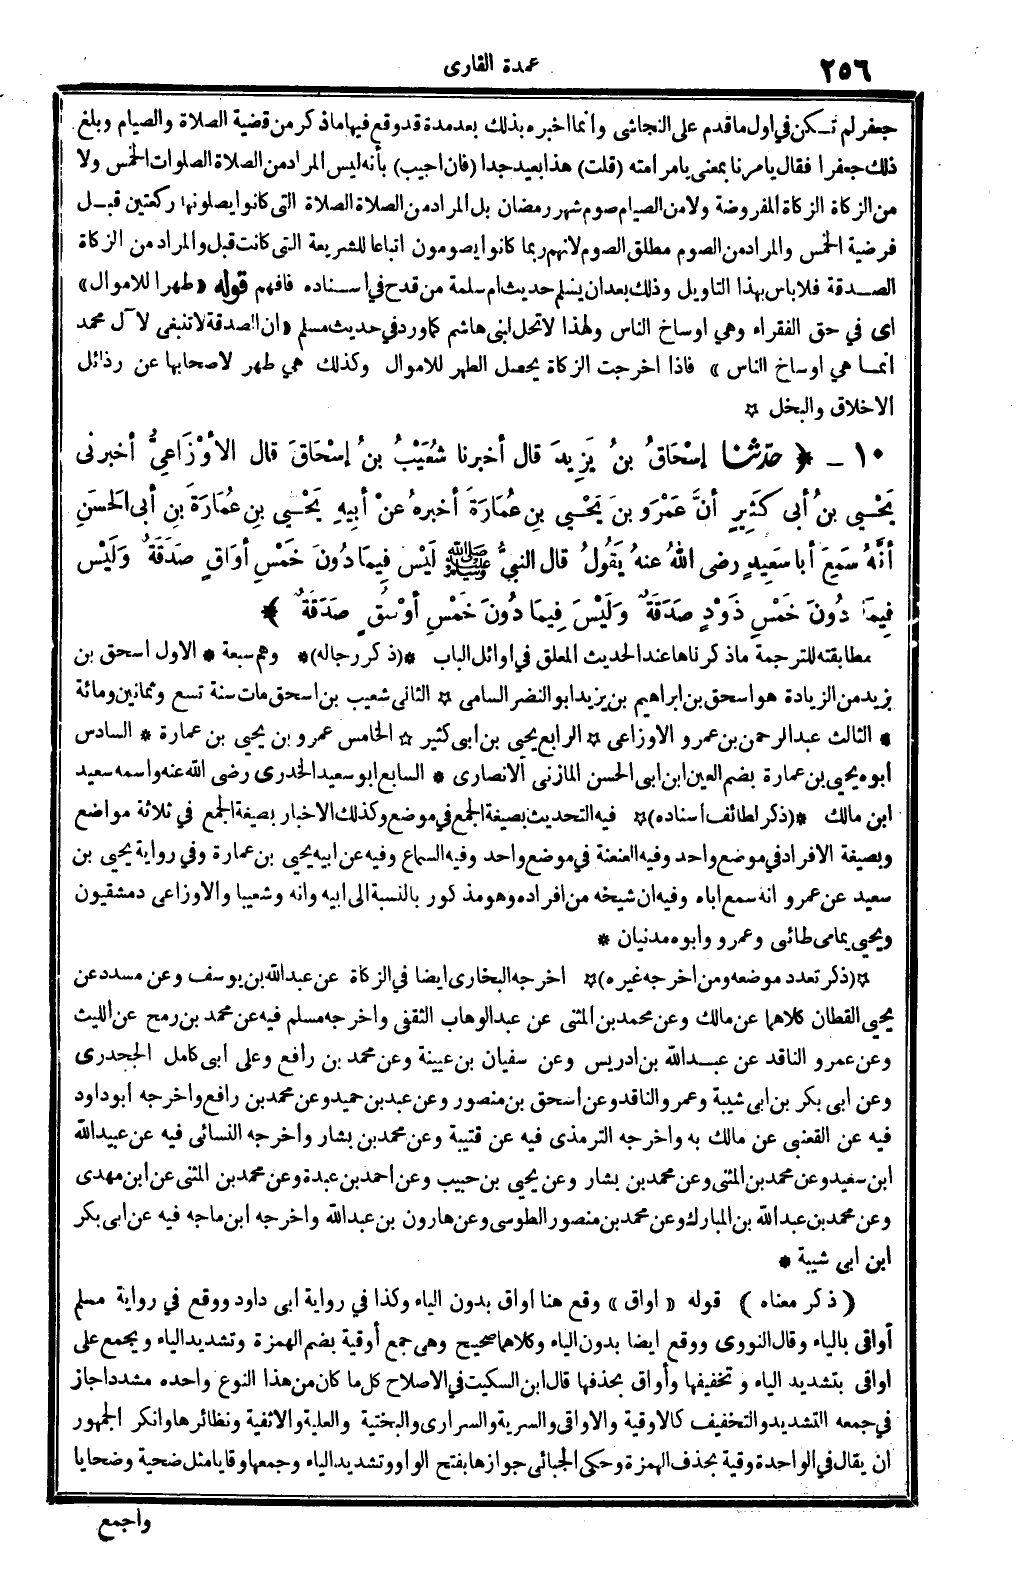 ٢٥٦ عمدة القارى
جعفر لم تكن فى اول ما قدم على النجاشى وانما اخبره بذلك بعد مدة قد وقع فيها ما ذكر من قضية الصلاة والصيام وبلغ
ذلك جعفرا فقال يامرنا بمعنى يامر امته (قلت) هذا بعيد جدا (فان اجيب) بأنه ليس المراد من الصلاة الصلوات الخمس ولا
من الزكاة الزكاة المفروضة ولا من الصيام صوم شهر رمضان بل المراد من الصلاة الصلاة التى كانوا يصلونها ركعتين قبل
فرضية الخمس والمراد من الصوم مطلق الصوم لانهم ربما كانوا يصومون اتباعا للشريعة التى كانت قبل والمراد من الزكاة
الصدقة فلا باس بهذا التاويل وذلك بعد ان يسلم حديث ام سلمة من قدح في اسناده فافهم قوله «طهرا للاموال»
اى في حق الفقراء وهي اوساخ الناس ولهذا لا تحل لبنى هاشم كما ورد في حديث مسلم «ان الصدقة لا تنبغى لآل محمد
انما هي اوساخ الناس» فاذا اخرجت الزكاة يحصل الطهر للاموال وكذلك هي طهر لاصحابها عن رذائل
الاخلاق والبخل ✩
١٠ – ﴿ حَدَّثَنَا إِسْحَاقُ بنُ يَزِيدَ قال أخبرنا شُعَيْبُ بنُ إِسْحَاقَ قال الأَوْزَاعِيُّ أخبرنى
يَحْيى بنُ أبى كَثِيرٍ أنَّ عَمْرَو بنَ يَحْيى بنِ عُمَارَةَ أخبرهُ عنْ أبيهِ يَحْيى بنِ عُمَارَةَ بنِ أبى الحَسَنِ
أنَّهُ سَمِعَ أبا سَعِيدٍ رضى اللهُ عنهُ يَقُولُ قال النبىُّ ﷺ لَيْسَ فِيمَا دُونَ خَمْسِ أوَاقٍ صَدَقَةٌ وَلَيْسَ
فِيمَا دُونَ خَمْسِ ذَوْدٍ صَدَقَةٌ وَلَيْسَ فِيمَا دُونَ خَمْسِ أوْسُقٍ صَدَقَةٌ ﴾
مطابقته للترجمة ما ذكرناها عند الحديث المعلق في اوائل الباب *(ذكر رجاله)* وهم سبعة * الاول اسحق بن
يزيد من الزيادة هو اسحق بن ابراهيم بن يزيد ابو النضر السامى ✩ الثانى شعيب بن اسحق مات سنة تسع وثمانين ومائة
* الثالث عبد الرحمن بن عمرو الاوزاعى ✩ الرابع يحيى بن ابى كثير ✩ الخامس عمرو بن يحيى بن عمارة * السادس
أبوه يحيى بن عمارة بضم العين ابن ابى الحسن المازنى الانصارى * السابع ابو سعيد الخدرى رضى الله عنه واسمه سعيد
ابن مالك *(ذكر لطائف اسناده)✩ فيه التحديث بصيغة الجمع في موضع وكذلك الاخبار بصيغة الجمع في ثلاثة مواضع
وبصيغة الافراد في موضع واحد وفيه العنعنة في موضع واحد وفيه السماع وفيه عن ابيه يحيى بن عمارة وفي رواية يحيى بن
سعيد عن عمرو انه سمع اباه وفيه ان شيخه من افراده وهو مذكور بالنسبة الى ابيه وانه وشعيبا والاوزاعى دمشقيون
ويحيى يمامى طائى وعمرو وابوه مدنيان *
✩(ذكر تعدد موضعه ومن اخرجه غيره)✩ اخرجه البخارى ايضا في الزكاة عن عبد الله بن يوسف وعن مسدد عن
يحيى القطان كلاهما عن مالك وعن محمد بن المثنى عن عبد الوهاب الثقفى واخرجه مسلم فيه عن محمد بن رمح عن الليث
وعن عمرو الناقد عن عبد الله بن ادريس وعن سفيان بن عيينة وعن محمد بن رافع وعلى ابى كامل الجحدرى
وعن ابى بكر بن ابى شيبة وعمرو الناقد وعن اسحق بن منصور وعن عبد بن حميد وعن محمد بن رافع واخرجه أبو داود
فيه عن القعنبى عن مالك به واخرجه الترمذى فيه عن قتيبة وعن محمد بن بشار واخرجه النسائى فيه عن عبيد الله
ابن سعيد وعن محمد بن المثنى وعن محمد بن بشار وعن يحيى بن حبيب وعن احمد بن عبدة وعن محمد بن المثنى عن ابن مهدى
وعن محمد بن عبد الله بن المبارك وعن محمد بن منصور الطوسى وعن هارون بن عبد الله واخرجه ابن ماجه فيه عن ابى بكر
ابن ابى شيبة *
(ذكر معناه) قوله «اواق» وقع هنا اواق بدون الياء وكذا في رواية ابى داود ووقع في رواية مسلم
أواقى بالياء وقال النووى ووقع ايضا بدون الياء وكلاهما صحيح وهى جمع أوقية بضم الهمزة وتشديد الياء ويجمع على
اواقى بتشديد الياء و تخفيفها وأواق بحذفها قال ابن السكيت في الاصلاح كل ما كان من هذا النوع واحده مشدد اجاز
في جمعه التشديد والتخفيف كالاوقية والاواقى والسرية والسرارى والبختية والعلية والاثفية ونظائرها وانكر الجمهور
ان يقال في الواحدة وقية بحذف الهمزة وحكى الجبائى جوازها بفتح الواو وتشديد الياء وجمعها وقايا مثل ضحية وضحايا
واجمع